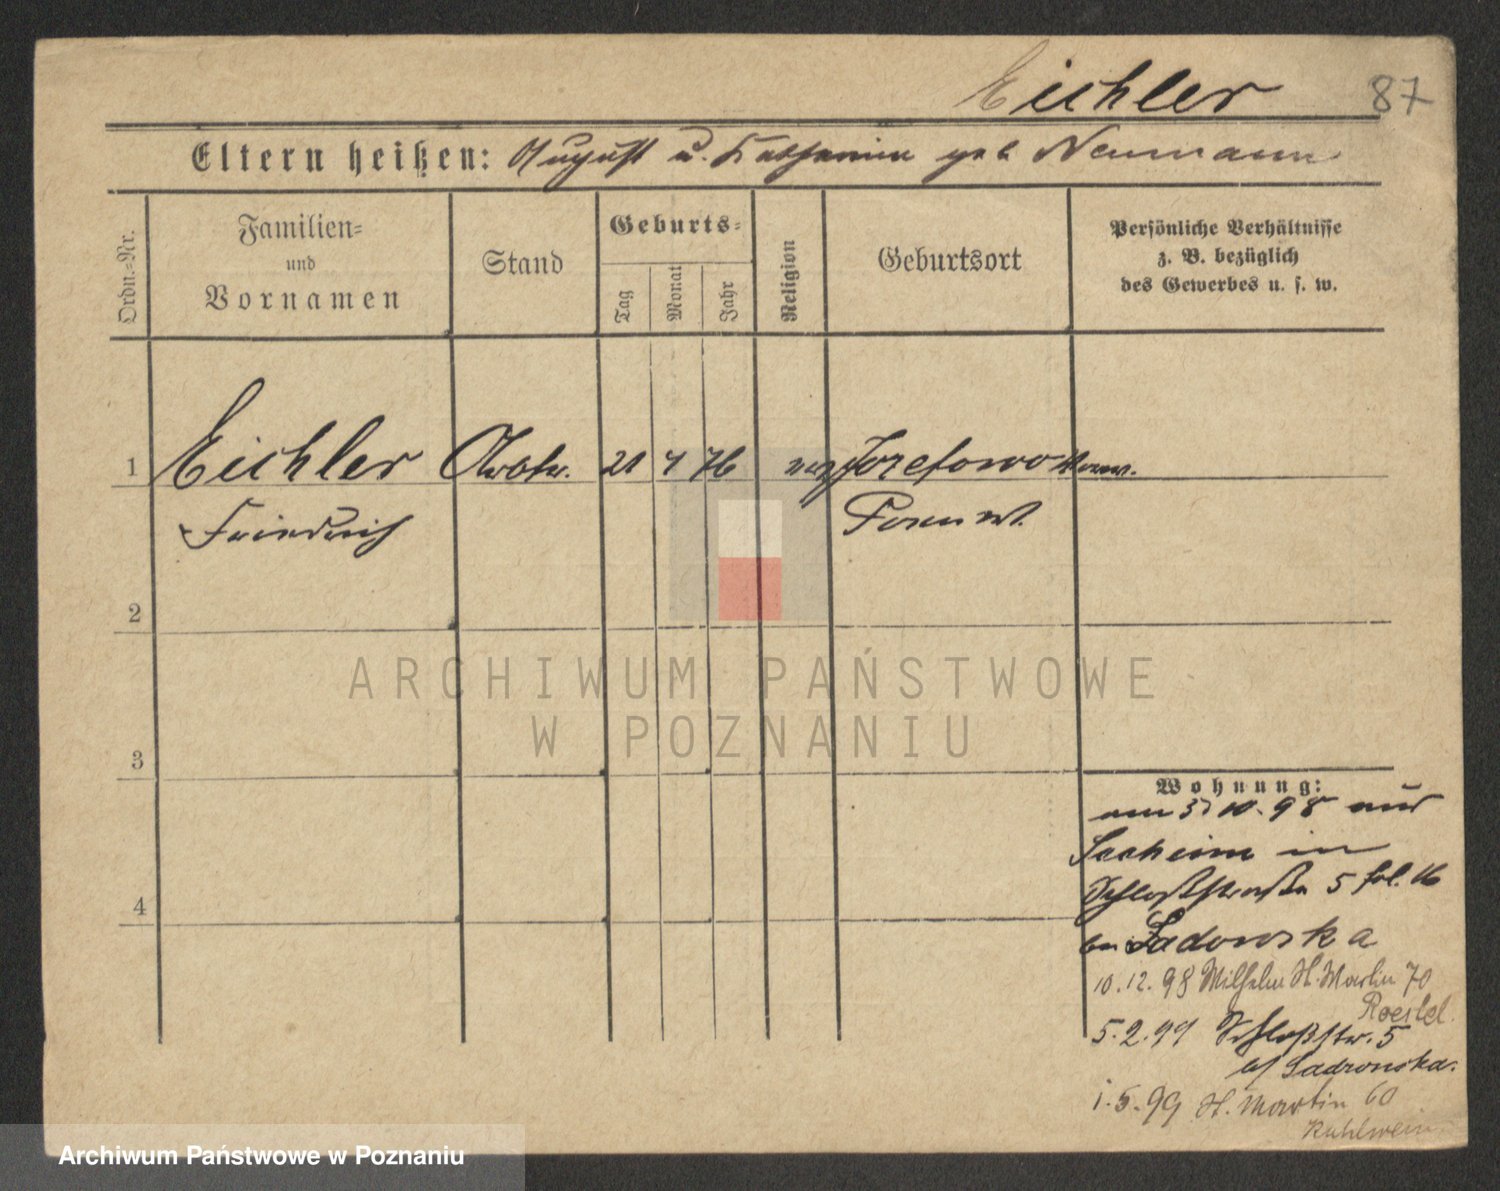 Eichler 87
Eltern heißen: August u. Katharina geb Neumann
Ordn.-Nr.
Familien-
und
Vornamen
Stand
Geburts-
Tag
Monat
Jahr
Religion
Geburtsort
Persönliche Verhältnisse
z. B. bezüglich
des Gewerbes u. s. w.
1 Eichler 21 4 76 Josefowo
Friedrich Posen
2
ARCHIWUM PAŃSTWOWE
W POZNANIU
3
Wohnung:
10.98
in
4 Schloßstraße 5
Ladowska
10.12.98 Wilhelm St. Martin 70
5.2.99 Schloßstr. 5
Ladronska.
1.5.99 St. Martin 60
Kuhlwein
Archiwum Państwowe w Poznaniu